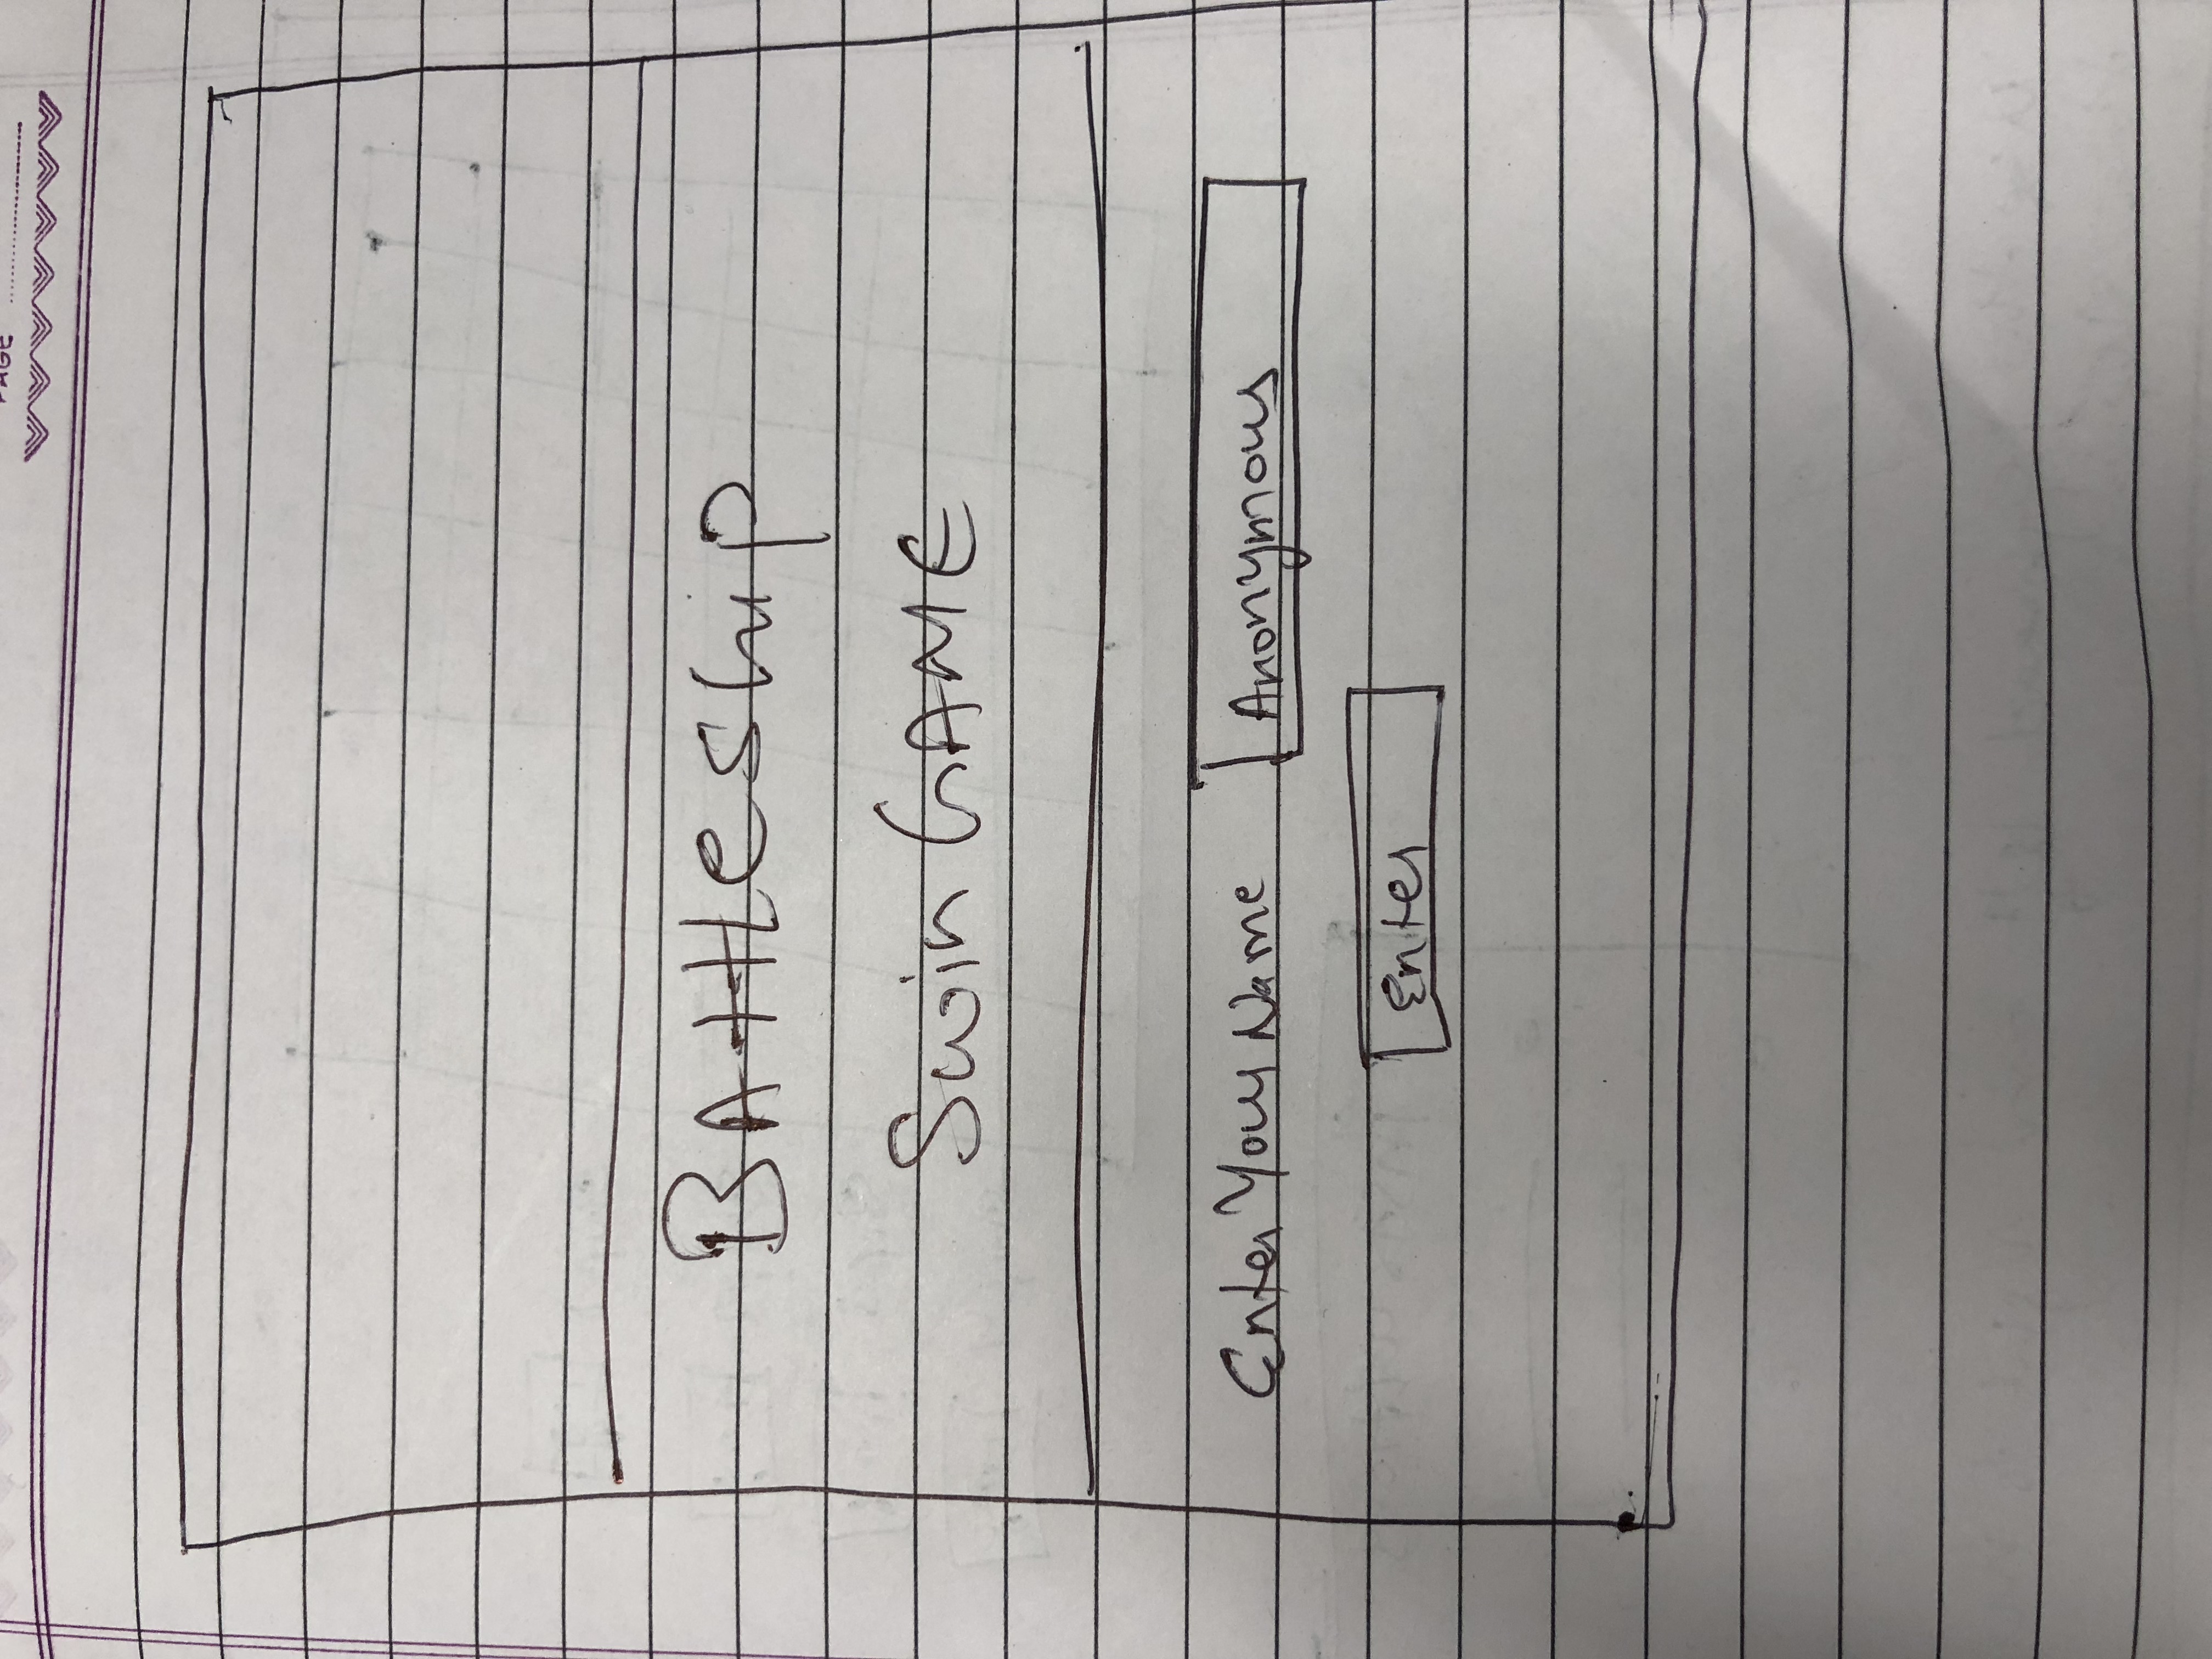 PAGE
BAttleship
Swin GAME
Enter Your Name Anonymous
Enter